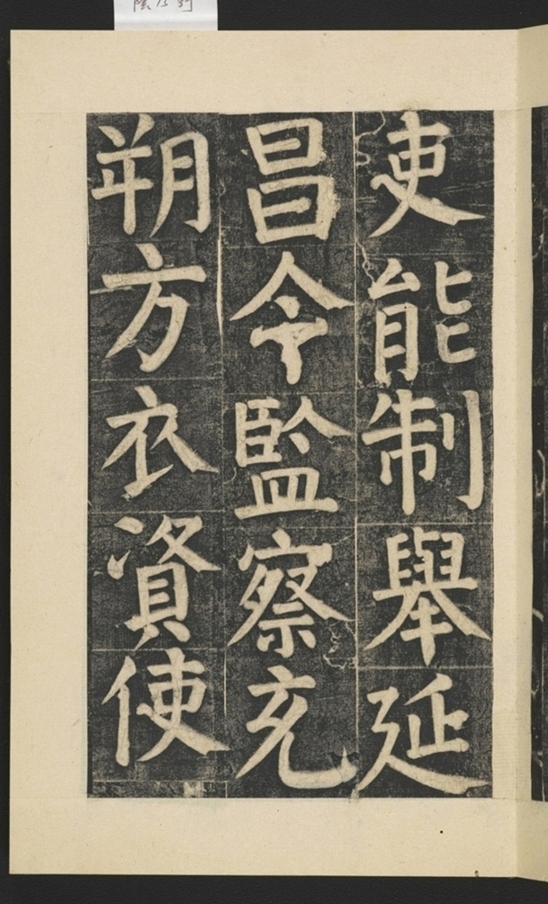 吏能制舉延
昌令監察充
朔方衣資使